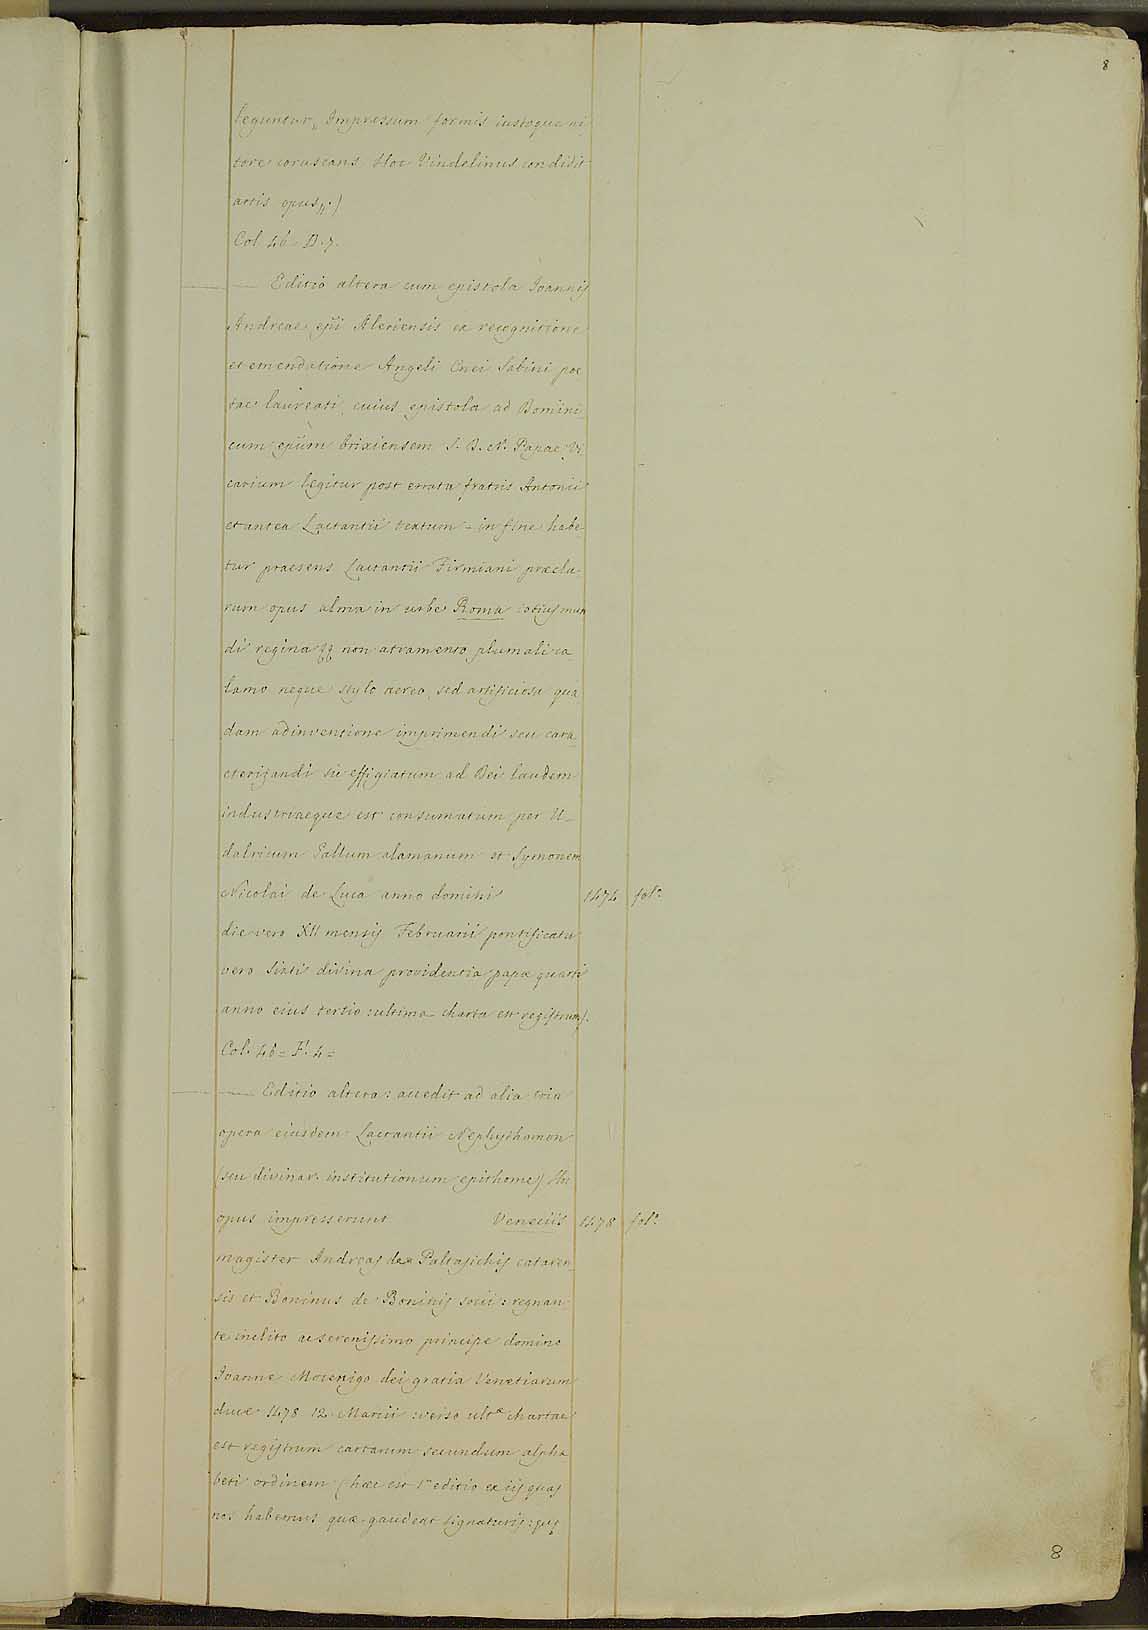 8
leguntur „ Impressum formis iustoque ni
tore coruscans Hoc Vindelinus condidit
artis opus „.)
Col. 46 = D. 7.
— Editio altera cum epistola Joannis
Andreae epi Aleriensis ex recognitione
et emendatione Angeli Cnei Sabini poe
tae laureati, cuius epistola ad Domini
cum epum brixiensem S. D. N. Papae Vi
carium legitur post errata fratris Antonii
et antea Lactantii textum - in fine habe-
tur praesens Lactantii Firmiani praecla-
rum opus alma in urbe Roma totius mun
di regina &c non atramento plumali ca-
lamo neque stylo aereo, sed artificiosa qua
dam adinventione imprimendi seu cara-
cterizandi sic effigiatum ad Dei laudem
industriaeque est consumatum per U-
dalricum Gallum alamanum et Symonem
Nicolai de Luca anno domini 1474 fol.°
die vero XII mensis Februarii pontificatu
vero Sixti divina providentia papae quarti
anno eius tertio: ultima charta est registrum).
Col. 46 = F. 4 =
— Editio altera: accedit ad alia tria
opera eiusdem Lactantii Nephythomon
(seu divinar. institutionum epithome) Hu
opus impresserunt Veneciis 1478 fol.°
magister Andreas de Paltasichis cataren-
sis et Boninus de Boninis socii: regnan-
te inclito ac serenissimo principe domino
Joanne Mocenigo dei gratia Venetiarum
duce 1478 12 Marcii: verso ult.ae chartae
est registrum cartarum secundum alpha
beti ordinem (haec est 1.a editio ex iis quas
nos habemus quae gaudeat signaturis:
8